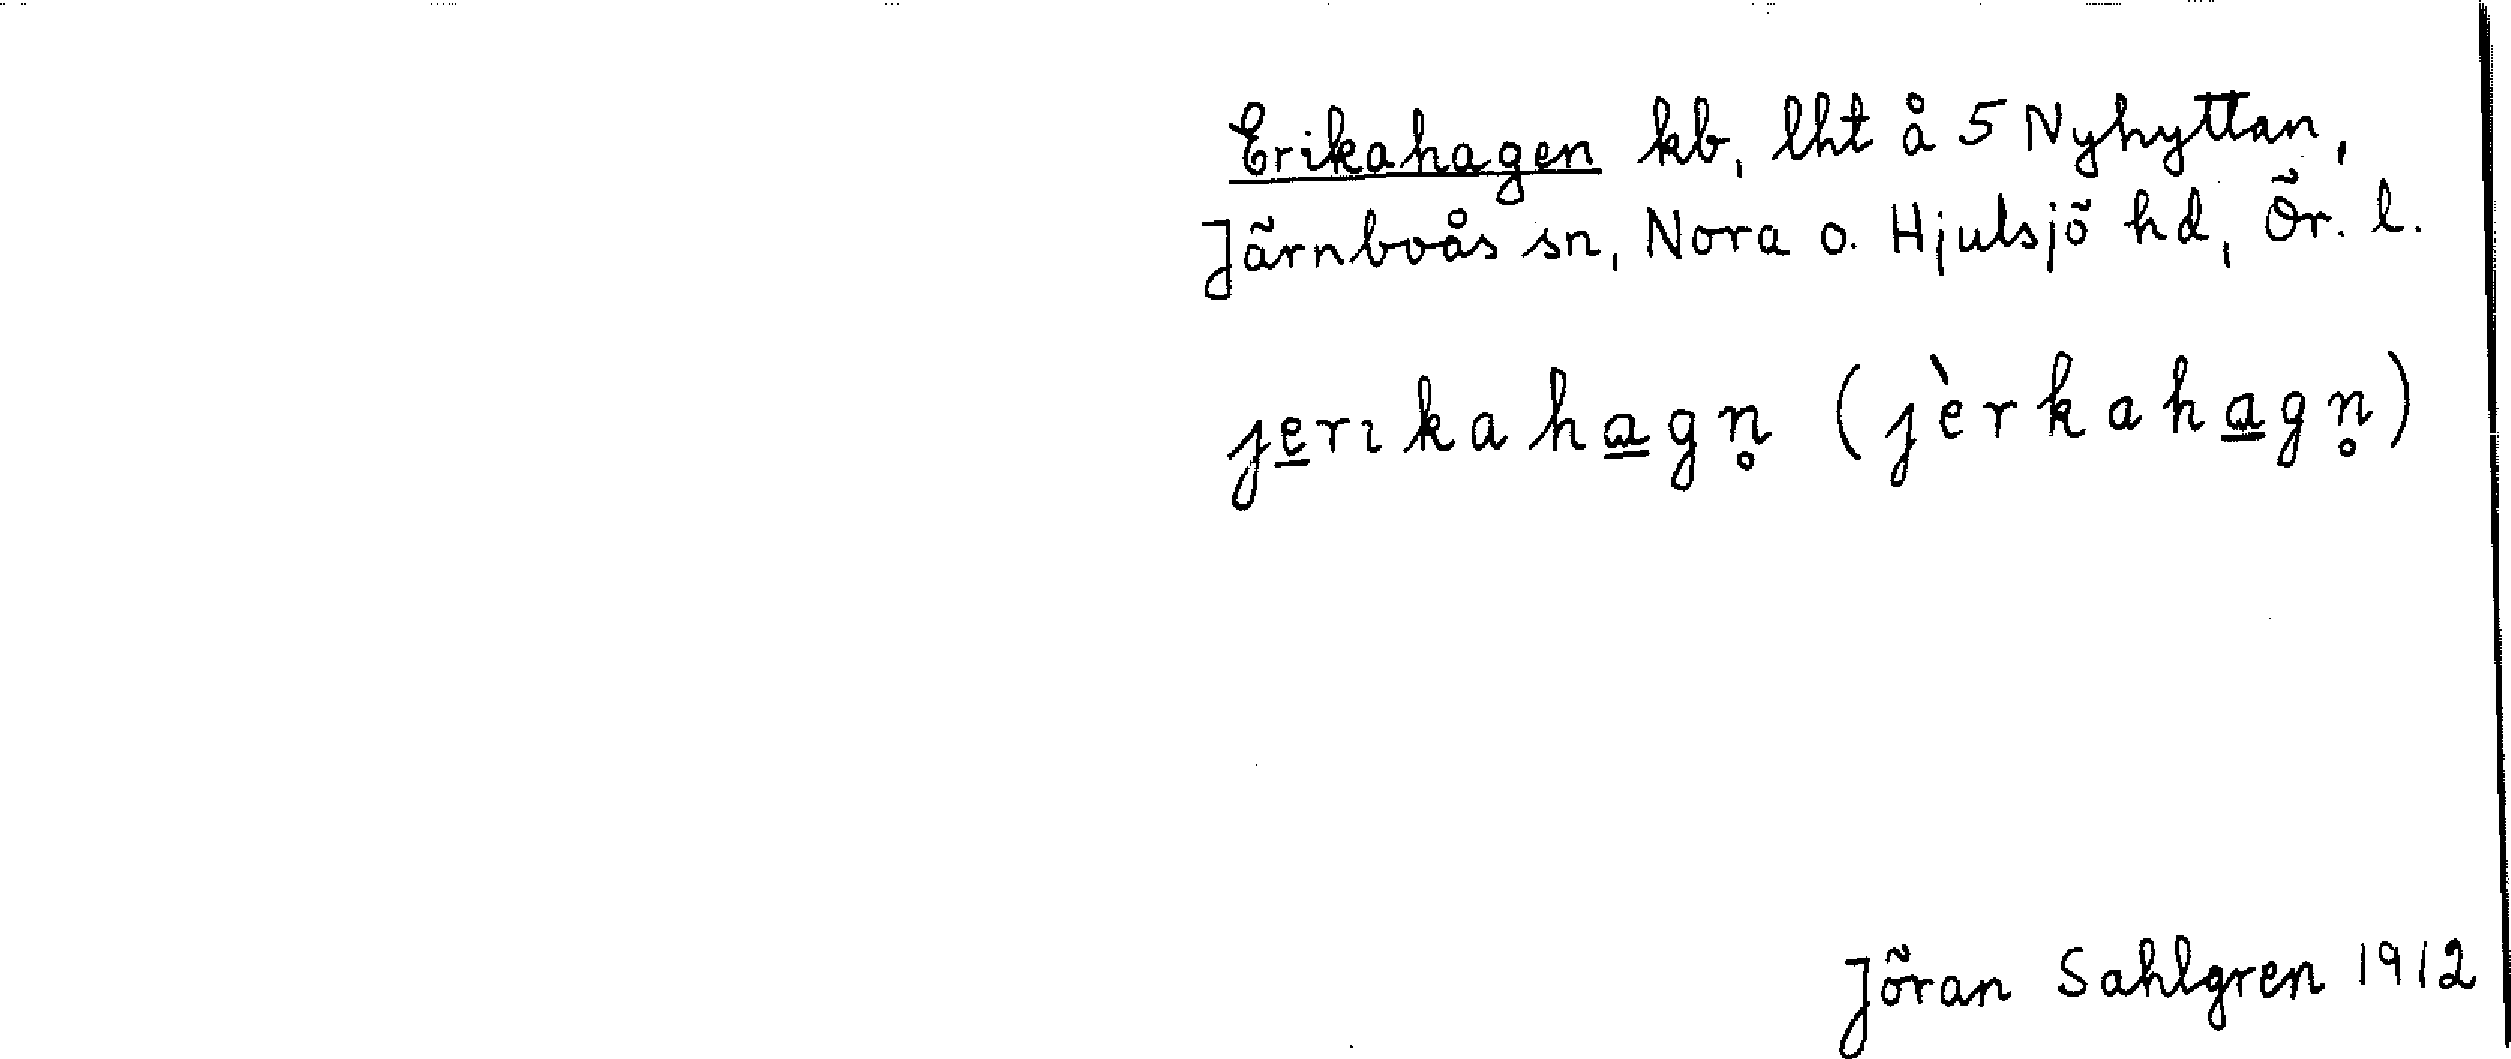 Erikahagen kb, lht å 5 Nyhyttan,
Järnboås sn, Nora o. Hjulsjö hd, Ör. l.
je̲rıkaha̲gn̥ (jèrkaha̲gn̥)
Jöran Sahlgren 1912